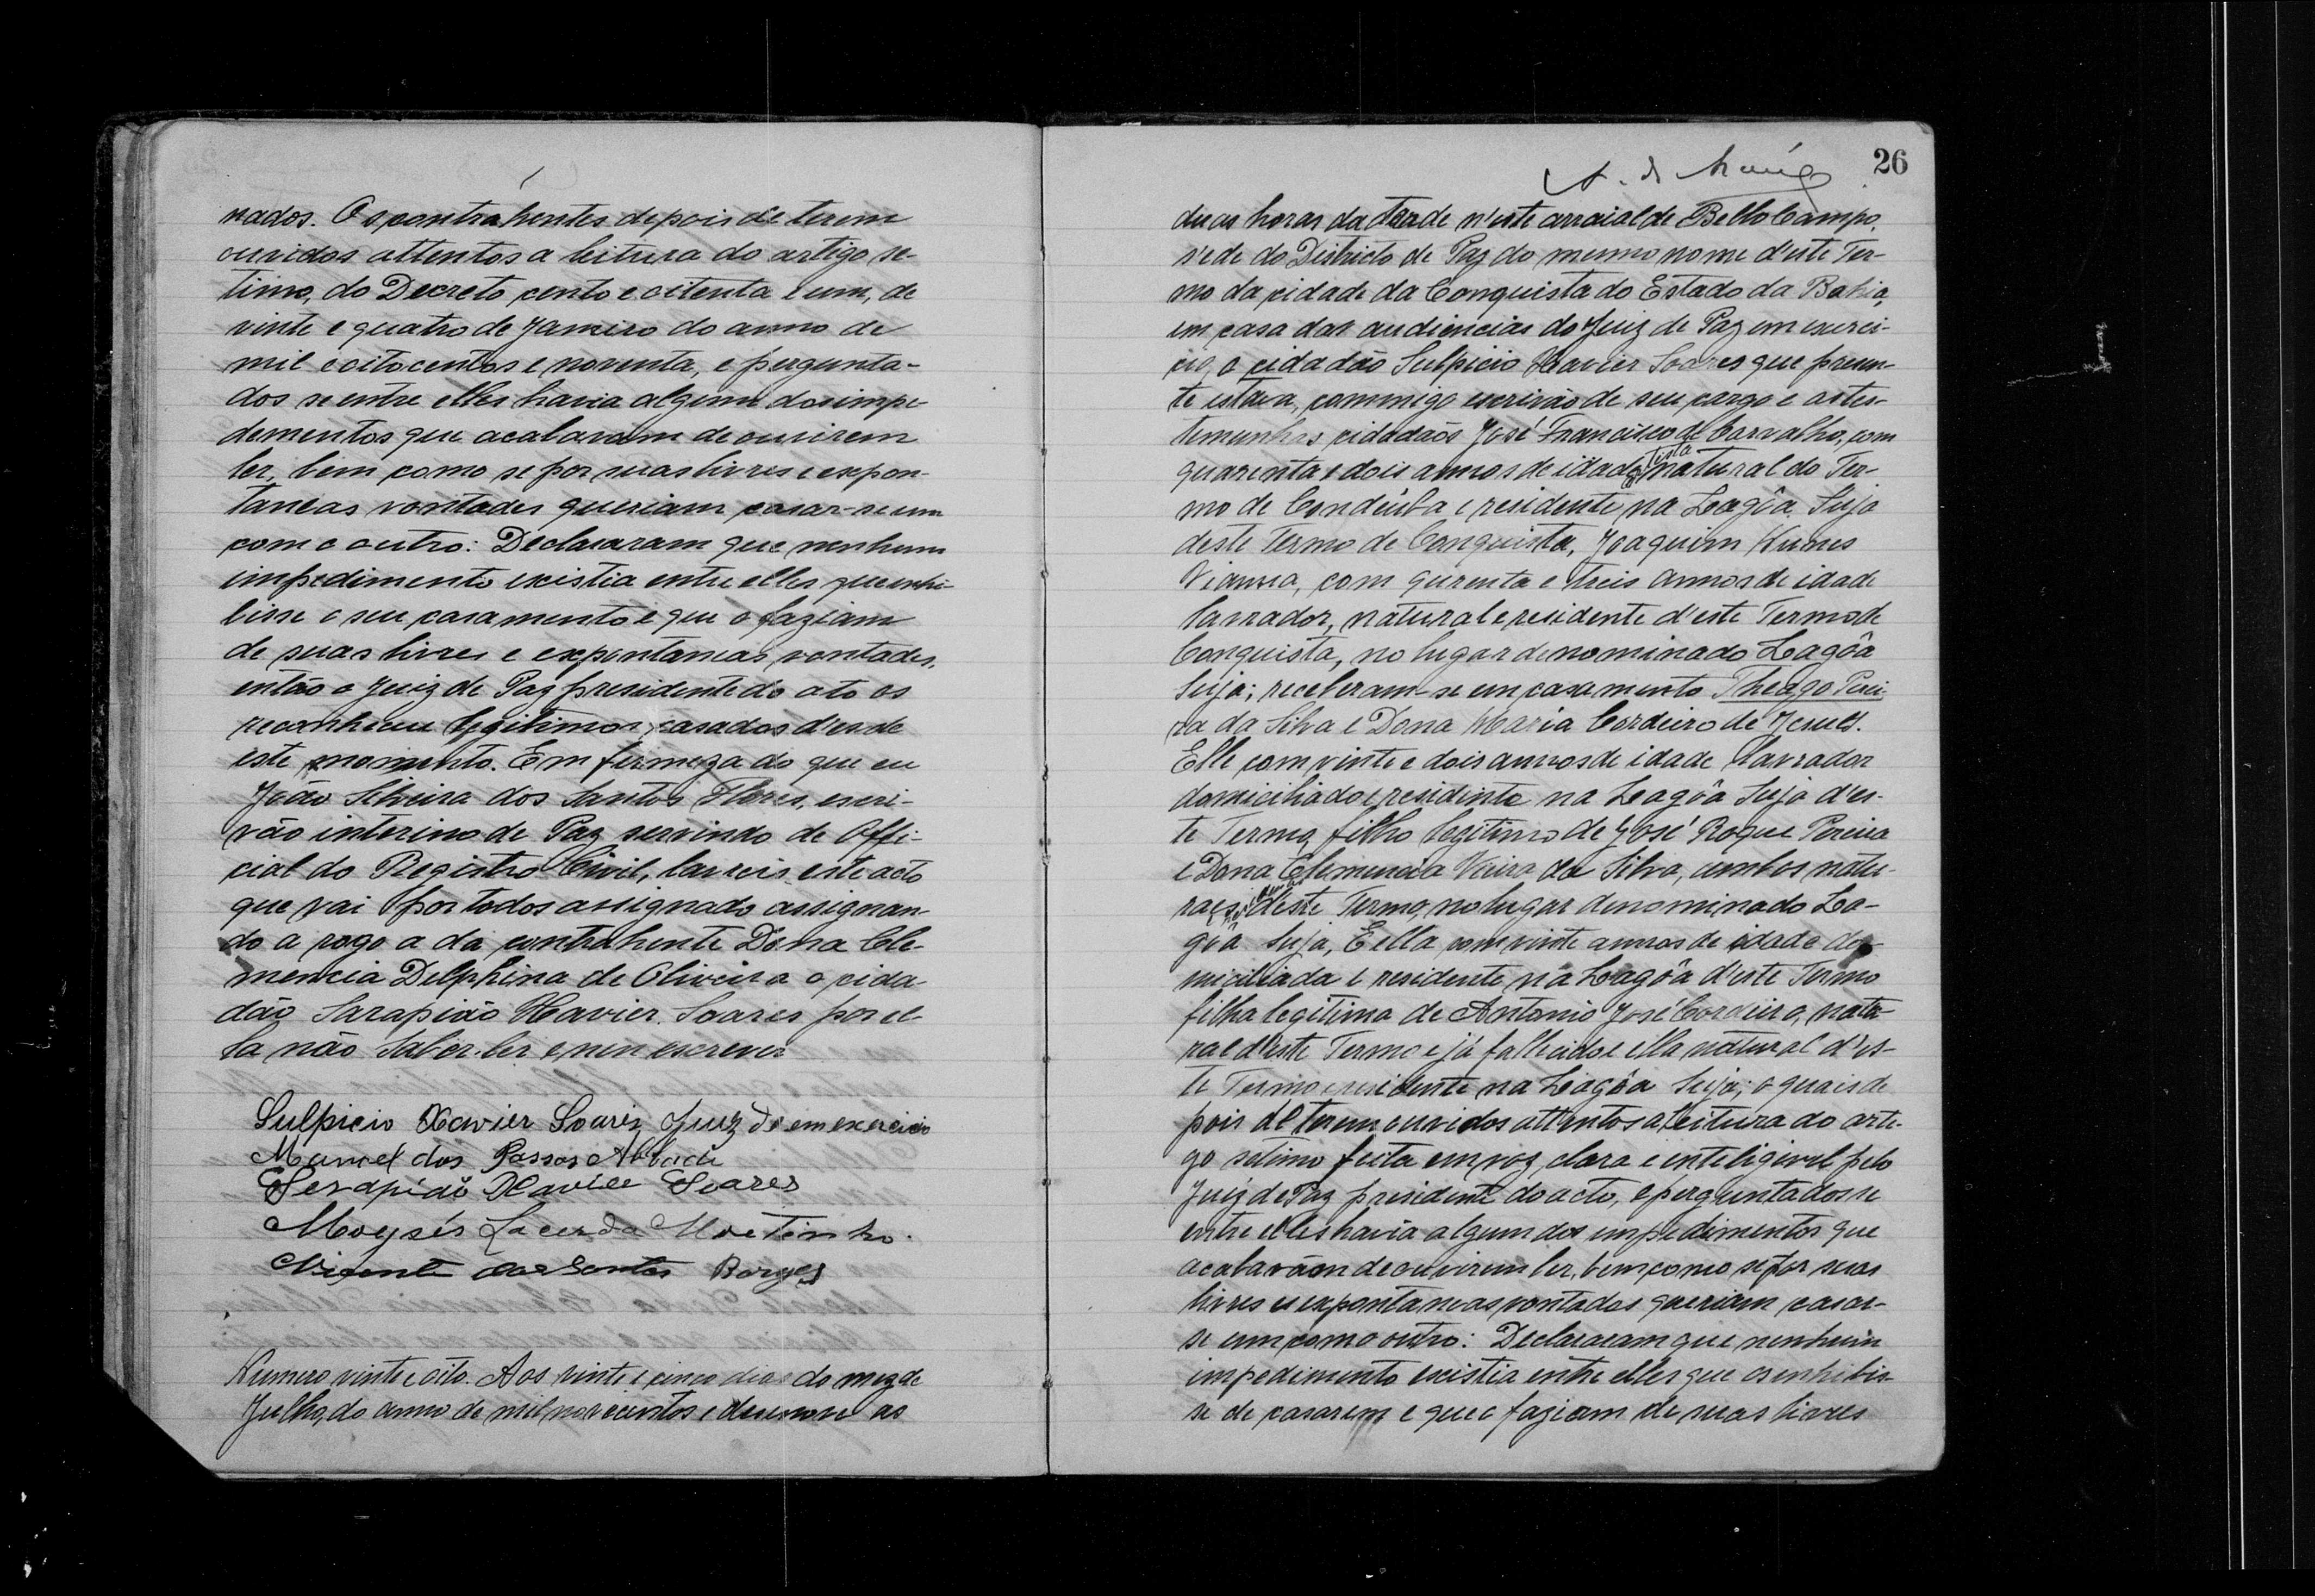 nados. Os contrahentes depois de terem
ouvidos attentos a leitura do artigo se-
timo, do Decreto cento e oitenta e um, de
vinte e quatro de Janeiro do anno de
mil e oitocentos e noventa, e pergunta-
dos se entre elles havia algum dos impe-
dementos que acabavam de ouvirem
ler, bem como se por suas livres e expon-
taneas vontades queriam casar-se um
com o outro: Declararam que nenhum
impedimento existia entre elles que enhi-
bisse o seu casamento e que o faziam
de suas livres e expontaneas vontades,
então o Juiz de Paz presidente do ato os
reconheceu legitimos casados desde
este momento. Em firmeza do que eu
João Silveira dos Santos Flores, escri-
vão interino de Paz servindo de Offi-
cial do Registro Civil, lavreis este acto
que vai por todos assignado assignan-
do a rogo a da contrahente Dona Cle-
mencia Delphina de Oliveira o cida-
dão Sarapião Xavier Soares por el-
la não saber ler e nem escrever
Sulpicio Xavier Soares Juiz de em exercicio
Manoel dos Passos Abbade
Serapião Xavier Soares
Moysés Lacerda Moetinho.
Vicente dos Santos Borges
Numero vinte e oito. Aos vinte e cinco dias do mez de
Julho, do anno de mil novecentos e desenove as
26
A. de
duas horas da tarde n'este arraial de Bello Campo,
sede do Districto de Paz do mesmo nome d'este Ter-
mo da cidade da Conquista do Estado da Bahia,
em casa das audiencias do Juiz de Paz em exerci-
cio, o cidadão Sulpicio Xavier Soares que presen-
te estava, commigo escrivão de seu cargo e as tes-
temunhas cidadãos José Francisco de Carvalho, com
quarenta e dois annos de idade natural do Ter-
mo de Condeúba e residente na Lagôa Suja
deste Termo de Conquista, Joaquim Nunes
Vianna, com qurenta e treis annos de idade
lavrador, natural e residente d'este Termo de
Conquista, no lugar denominado Lagôa
Suja; receberam-se em casamento Theago Perei-
ra da Silva e Dona Maria Cordeiro de Jesus.
Elle com vinte e dois annos de idade, lavrador
domiciliado e residente na Lagôa Suja d'es-
te Termo, filho legitimo de José Roque Pereira
e Dona Clemencia Vieira da Silva, ambos natu-
raes deste Termo, no lugar denominado La-
gôa Suja, E ella com vinte annos de idade do-
miciliada e residente na Lagôa d'este Termo
filha legitima de Antonio José Cordeiro, natu-
ral d'este Termo e já fallecido e ella natural d'es-
te Termo e residente na Lagôa Suja; o quais de
pois de terem ouvidos attentos a leitura do arti-
go setimo feita em voz clara e inteligivel pelo
Juiz de Paz presidente do acto, e perguntados se
entre elles havia algum dos impedimentos que
acabavãm de ouvirem ler, bem como se por suas
livres e expontaneas vontades queriam casar-
se um com o outro: Declararam que nenhum
impedimento existia entre elles que os enhibis-
se de casarem e que o faziam de suas livres